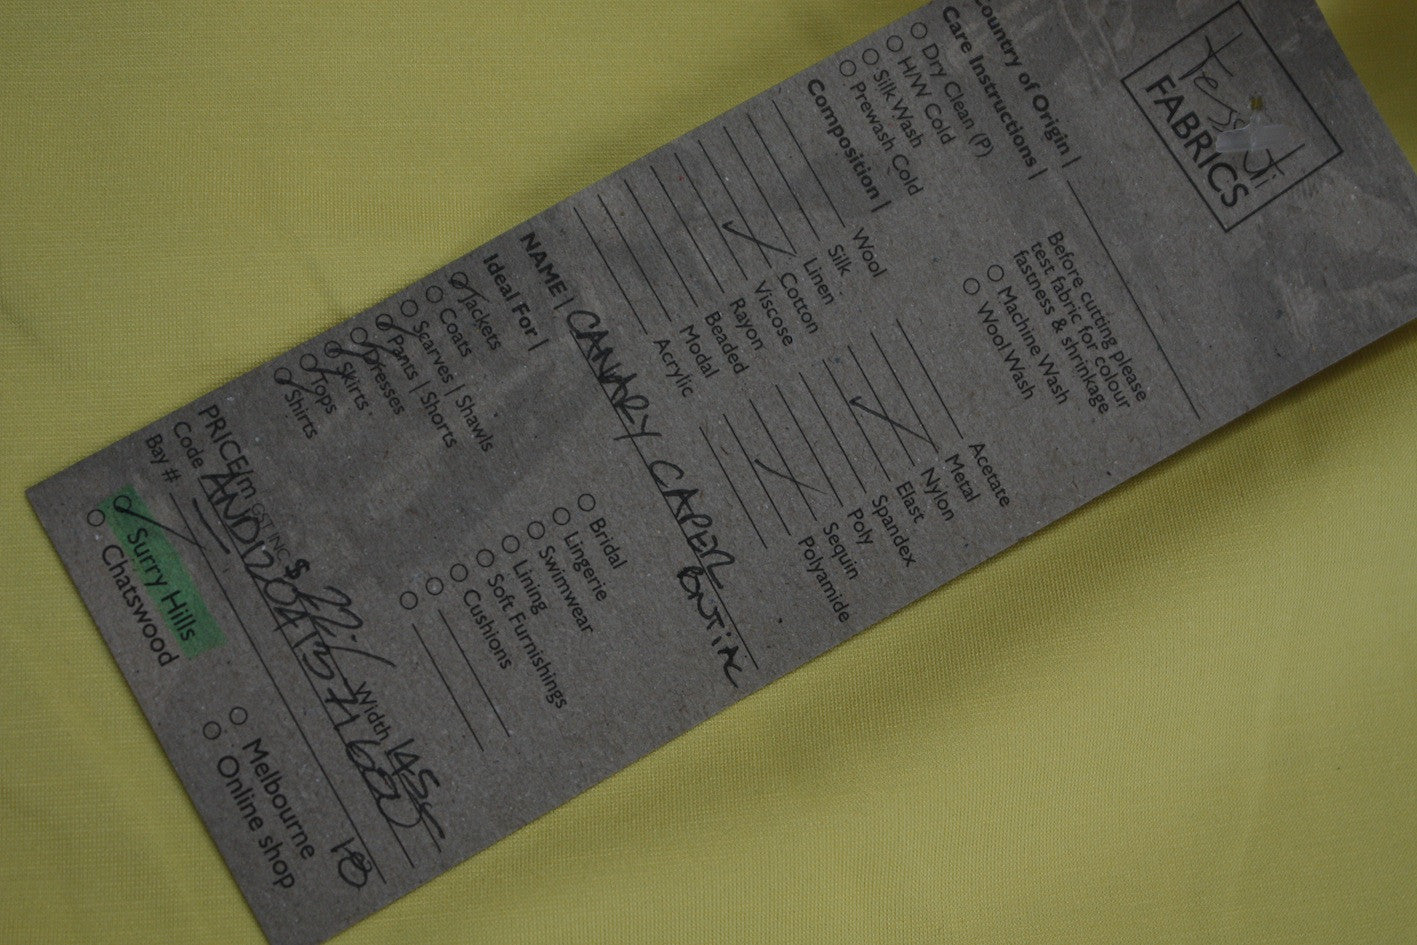 Tessuti
FABRICS
Country of Origin |
Care Instructions |
Dry Clean (P)
H/W Cold
Silk Wash
Prewash Cold
Before cutting please
test fabric for colour
fastness & shrinkage
Machine Wash
Wool Wash
Composition |
Wool
Silk
Linen
Cotton
Viscose
Rayon
Beaded
Modal
Acrylic
Acetate
Metal
Nylon
Elast
Spandex
Poly
Sequin
Polyamide
NAME | CANARY CAPER
PONTI
Ideal For |
Jackets
Coats
Scarves | Shawls
Pants | Shorts
Dresses
Skirts
Tops
Shirts
Bridal
Lingerie
Swimwear
Lining
Soft Furnishings
Cushions
PRICE/m GST INC $ Width 145
Code
Bay #
Surry Hills
Chatswood
Melbourne
Online shop